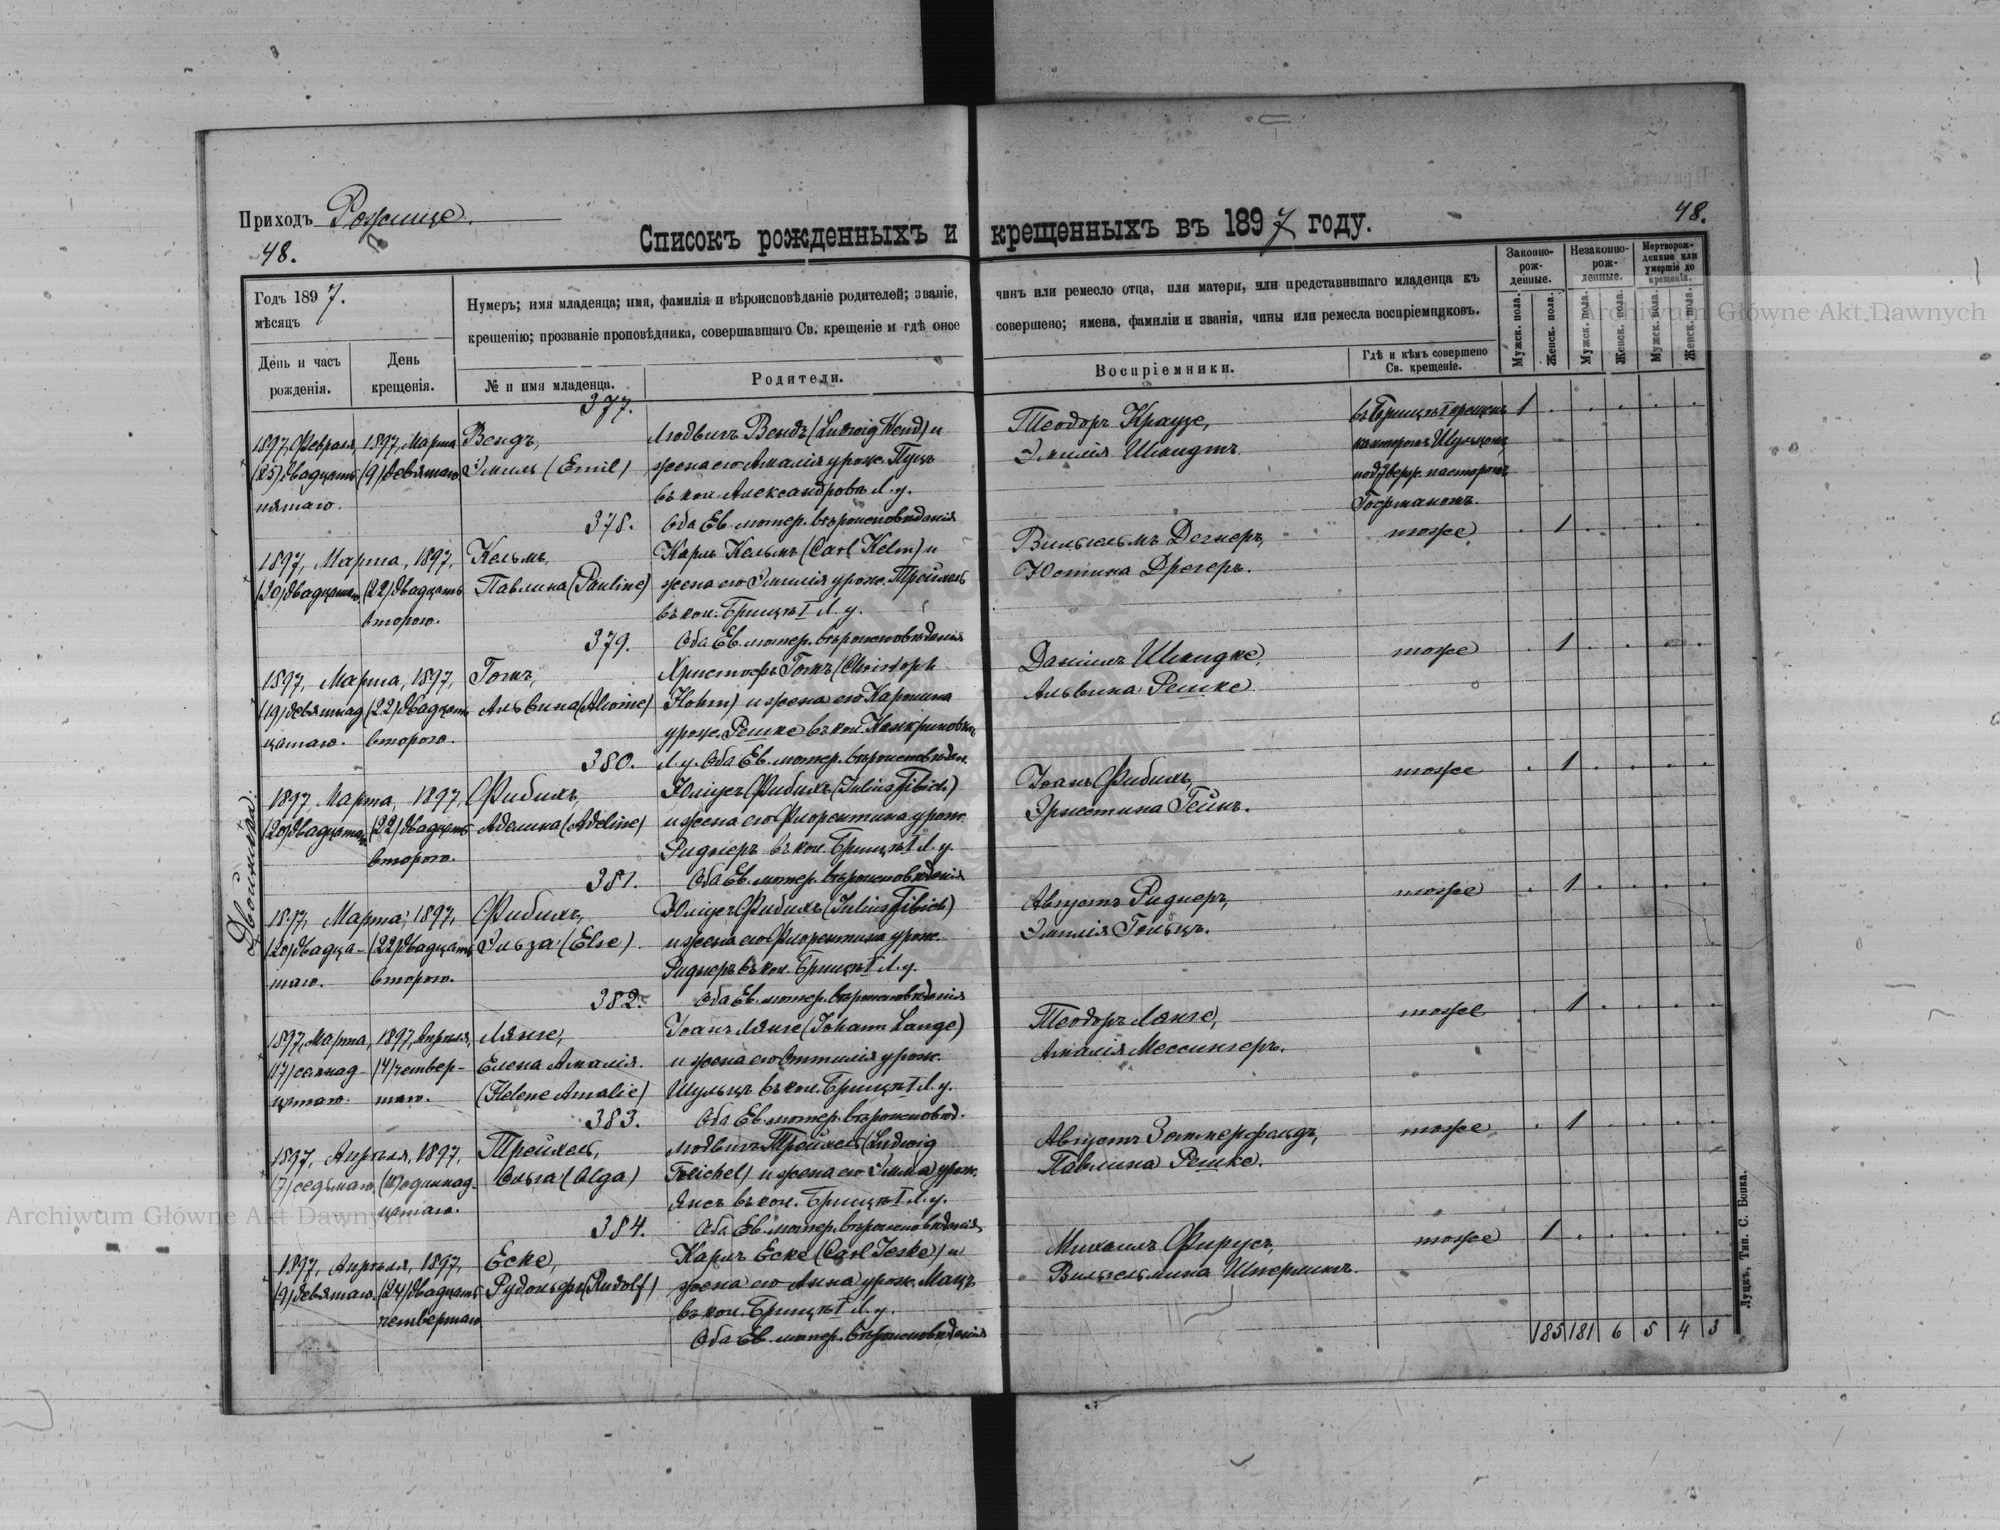 Приходъ Рожище.
48.
48.
Списокъ рожденныхъ и крещенныхъ въ 1897 году.
Годъ 1897.
мѣсяцъ
Нумеръ; имя младенца; имя, фамилія и вѣроисповѣданіе родителей; званіе,
крещенію; прозваніе проповѣдника, совершавшаго Св. крещеніе и гдѣ оное
чинъ или ремесло отца, или матери, или представившаго младенца къ
совершено; имена, фамиліи и званія, чины или ремесла воспріемниковъ.
День и часъ
рожденія.
День
крещенія.
№ и имя младенца.
Родители.
Воспріемники.
Гдѣ и кѣмъ совершено
Св. крещеніе.
Законно-
рож-
денные.
Незаконно-
рож-
денные.
Мертворож-
денные или
умершіе до
крещенія.
Мужск. пола.
Женск. пола.
Мужск. пола.
Женск. пола.
Мужск. пола.
Женск. пола.
377.
1897, Февраля,
(25) двадцать
пятаго.
1897, Марта
(9) девятаго
Вендъ,
Эмиль (Emil)
Людвигъ Вендъ (Ludwig Wend) и
жена его Амалія урож. Пуцъ
въ кол. Александровк. Л. у.
Оба Ев. лютер. вѣроисповѣданія
Теодоръ Краузе,
Эмилія Шмидтъ
въ Грицкѣ I крещены
канторомъ Шульцомъ,
подтверж. пасторомъ
Госрманомъ.
1
378.
1897, Марта,
(20) двадцатаго
1897,
(22) двадцать
второго.
Кельмъ,
Павлина (Pauline)
Карлъ Кельмъ (Carl Kelm) и
жена его Эмилія урож. Трейхель
въ кол. Грицкѣ I Л. у.
Оба Ев. лютер. вѣроисповѣданія
Вильгельмъ Дегнеръ,
Юстина Дрегеръ.
тоже
1
379.
1897, Марта,
(19) девятнад
цатаго.
1897,
(22) двадцать
второго.
Гомъ,
Альвина (Alwine)
Христофъ Гомъ (Christoph
Hohm) и жена его Каролина
урож. Решке въ кол. Канкриновка
Л. у. Оба Ев. лютер. вѣроисповѣдан.
Даніилъ Шмидке,
Альвина Решке
тоже
1
Двойники.
380.
1897 Марта,
(20) двадцатаго
1897,
(22) двадцать
второго.
Фибихъ,
Аделина (Adeline)
Юліусъ Фибихъ (Julius Fibich)
и жена его Флорентина урож.
Риднеръ въ кол. Грицкѣ I Л. у.
Оба Ев. лютер. вѣроисповѣданія
Іоанъ Фибихъ,
Эрнстина Гейнъ.
тоже
1
381.
1897, Марта,
(20) двадца-
таго.
1897,
(22) двадцать
второго.
Фибихъ,
Эльза (Else).
Юліусъ Фибихъ (Julius Fibich)
и жена его Флорентина урож.
Риднеръ въ кол. Грицкѣ I Л. у.
Оба Ев. лютер. вѣроисповѣданія
Августъ Риднеръ,
Эмилія Гольцъ.
тоже
1
382.
1897, Марта,
(17) семнад-
цатаго.
1897, Апрѣля,
(4) четвер-
таго.
Лянге,
Елена Амалія.
(Helene Amalie)
Іоанъ Лянге (Johann Lange)
и жена его Оттилія урож.
Шульцъ въ кол. Грицкѣ I Л. у.
Оба Ев. лютер. вѣроисповѣд.
Теодоръ Лянге,
Амалія Мессингеръ.
тоже
1
383.
1897, Апрѣля,
(7) седьмаго.
1897,
(11) одиннад-
цатаго.
Трейхель,
Ольга (Olga)
Людвигъ Трейхель (Ludwig
Treichel) и жена его Эмма урож.
Янсъ въ кол. Грицкѣ I Л. у.
Оба Ев. лютер. вѣроисповѣданія
Августъ Зоммерфельдъ,
Павлина Решке.
тоже
1
384.
1897, Апрѣля,
(9) девятаго.
1897,
(24) двадцать
четвертаго
Еске,
Рудольфъ (Rudolf)
Карлъ Еске (Carl Jeske) и
жена его Анна урож. Мацъ
въ кол. Грицкѣ I Л. у.
Оба Ев. лютер. вѣроисповѣданія
Михаилъ Фирусъ,
Вильгельмина Шперлингъ.
тоже
1
185 181 6 5 4 3
Луцкъ, Тип. С. Бокка.
Archiwum Główne Akt Dawnych
Archiwum Główne Akt Dawnych